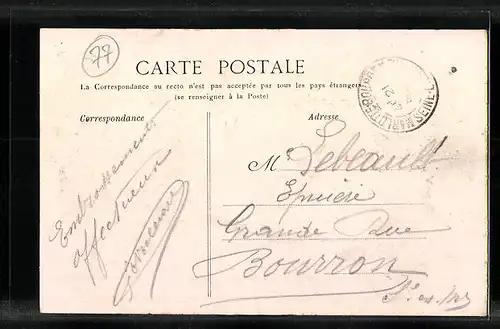 77
CARTE POSTALE
La Correspondance au recto n'est pas acceptée par tous les pays étrangers
(se renseigner à la Poste)
Correspondance
Adresse
Embrassements
affectueux
M Lebeault
Epicière
Grande Rue
Bourron
S. et M.